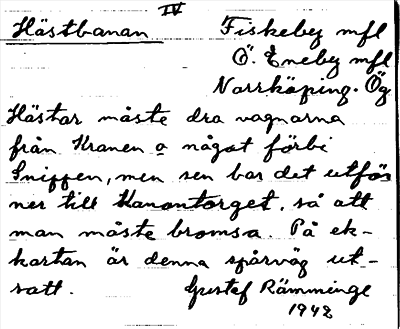 IV
Hästbanan Fiskeby mfl
Ö. Eneby mfl
Norrköping. Ög
Hästar måste dra vagnarna
från Kranen o något förbi
Snippen, men sen bar det utför
ner till Kanontorget, så att
man måste bromsa. På ek-
kartan är denna spårväg ut-
satt. Gustef Rämminge
1942